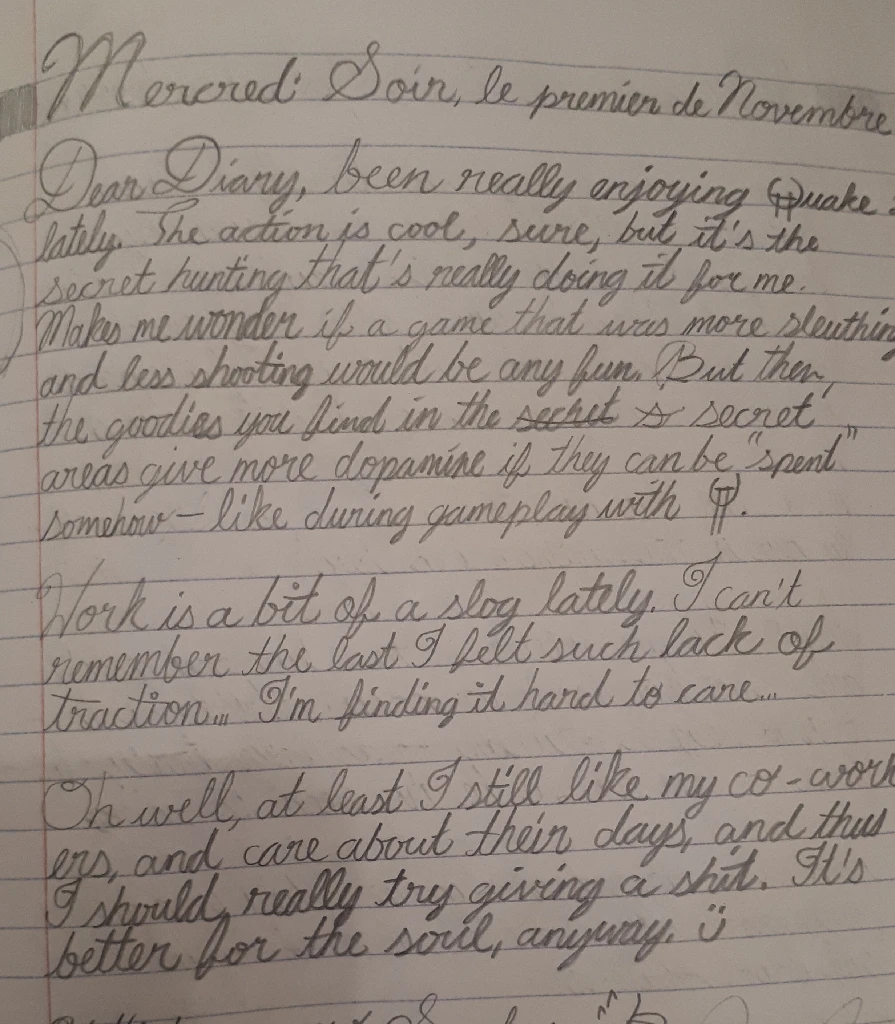 Mercredi Soir, le premier de Novembre
Dear Diary, been really enjoying Quake
lately. The action is cool, sure, but it's the
secret hunting that's really doing it for me.
Makes me wonder if a game that was more sleuthing
and less shooting would be any fun. But then,
the goodies you find in the secret secret
areas give more dopamine if they can be "spent"
somehow — like during gameplay with
Work is a bit of a slog lately. I can't
remember the last I felt such lack of
traction... I'm finding it hard to care...
Oh well, at least I still like my co-work
ers, and care about their days, and thus
I should really try giving a shit. It's
better for the soul, anyway. ü